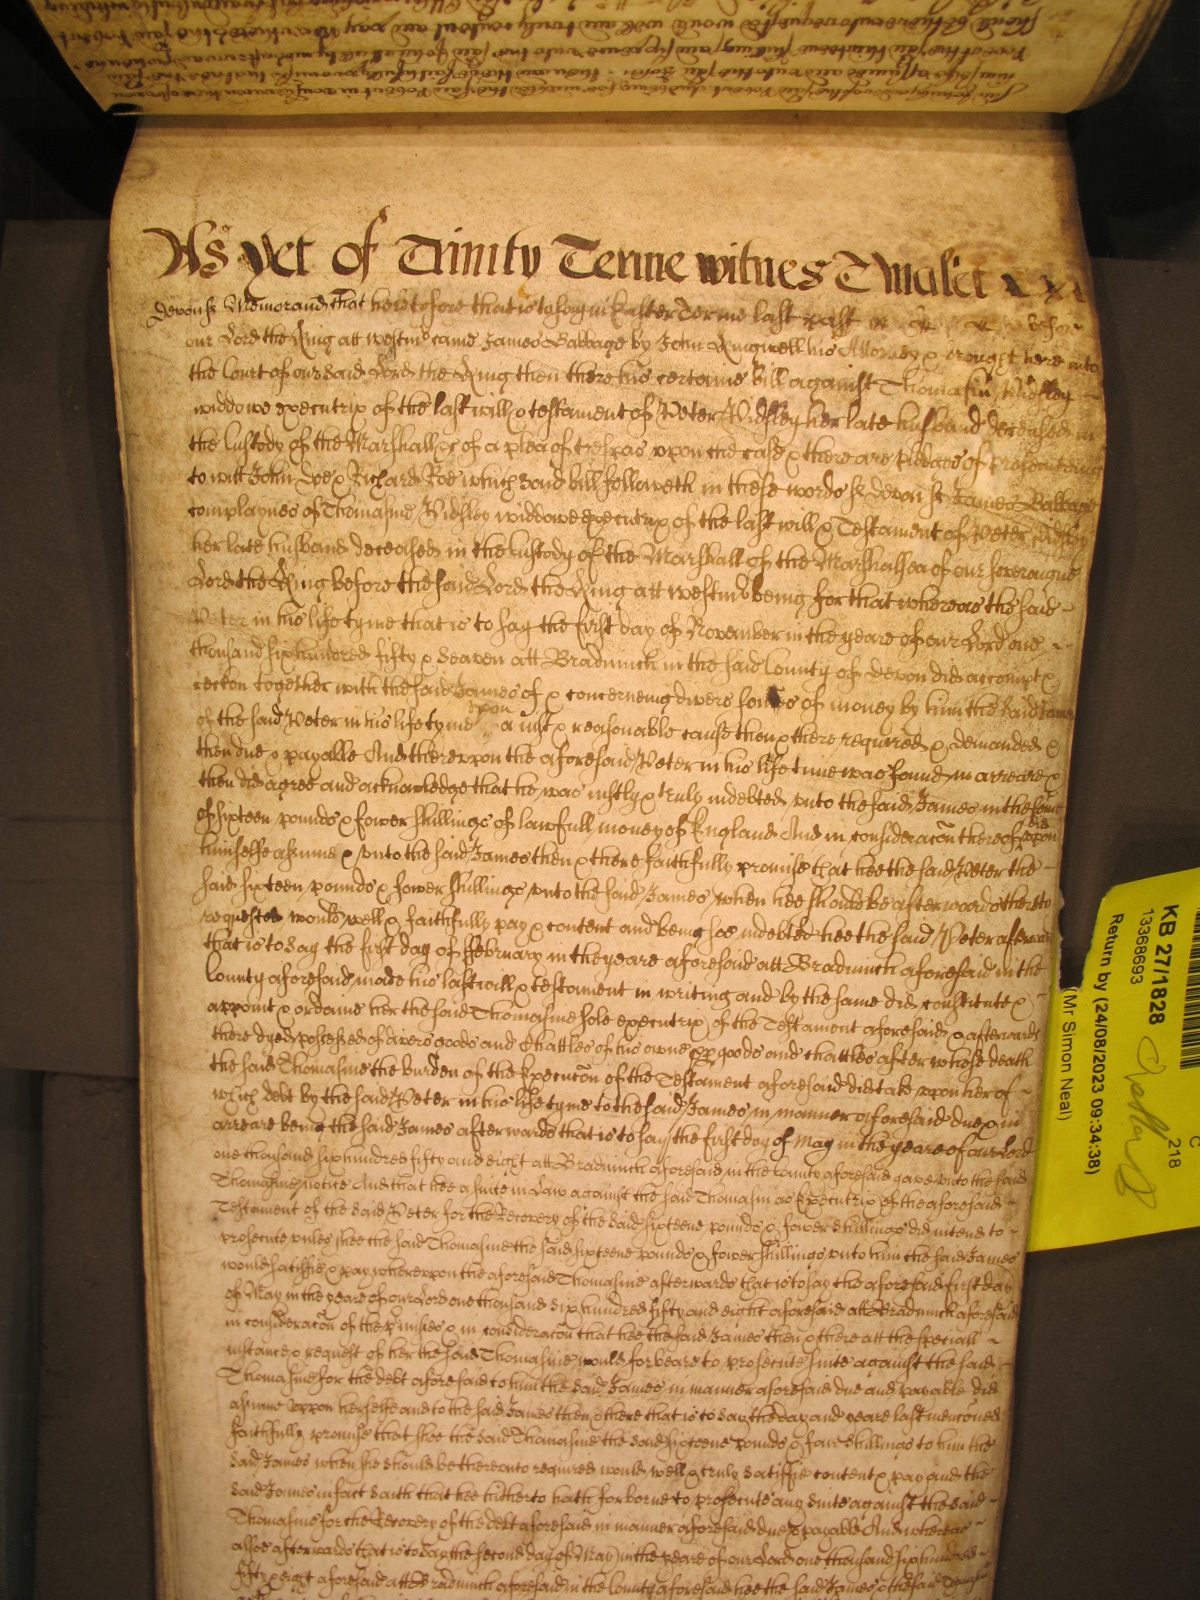 As yet of Trinity Terme witnes T Malet
Devon ss Memorand that heretofore that is to say in Easter Terme last past before
our Lord the King att Westmr came James Babbage by John Ringwell his Attorney & brought here into
the Court of our said Lord the King then there his certaine bill against Thomasin Ridsley
widdowe executrix of the last will & testament of Peter Ridsley her late husband deceased in
the Custody of the Marshall &c of a plea of trespas upon the case & there are pledges of prosecuting
to witt John Doe & Richard Roe which said bill followeth in these words ss Devon ss James Babbage
complaynes of Thomasine Ridsley widdowe executrix of the last will & Testament of Peter Ridsley
her late husband deceased in the Custody of the Marshall of the Marshalsea of our soveraigne
Lord the King before the said Lord the King att Westmr being for that whereas the said
Peter in his life tyme that is to say the first day of November in the yeare of our Lord one
thousand six hundred fifty & seaven att Bradninch in the said County of Devon did accompt &
reckon together with the said James of & concerneing divers somes of money by him the said James
of the said Peter in his life tyme upon a just & reasonable cause then & there required & demanded &
then due & payable And thereupon the aforesaid Peter in his life time was found in arreare &
then did agree and acknowledge that he was justly & truly indebted unto the said James in the some
of sixteen pounds & fower shillings of lawfull money of England And in consideracon thereof did upon
himselfe assume & unto the said James then & there faithfully promise that hee the said Peter the
said sixteen pounds & fower shillings unto the said James when hee should be afterwards thereto
requested would well & faithfully pay & content and being soe indebted hee the said Peter afterwards
that is to say the first day of ffebruary in the yeare aforesaid att Bradninch aforesaid in the
County aforesaid made his last will & testament in writing and by the same did constitute &
appoint & ordaine her the said Thomasine sole executrix of the Testament aforesaid & afterwards
there dyed possessed of divers goods and Chattles of his owne goods and chattles after whose death
the said Thomasine the burden of the Execucon of the Testament aforesaid did take upon her of
which debt by the said Peter in his life tyme to the said James in manner aforesaid due & in
arreare being the said James afterwards that is to say the first day of May in the yeare of our Lord
one thousand six hundred fifty and eight att Bradninch aforesaid in the County aforesaid gave unto the said
Thomasine notice And that hee a suite in Law against the said Thomasin as Executrix of the aforesaid
Testament of the said Peter for the Recovery of the said sixteene pounds & fower shillings did intend to
prosecute unles shee the said Thomasine the said sixteene pounds & fower shillings unto him the said James
would satisfie & pay whereupon the aforesaid Thomasine afterwards that is to say the aforesaid first day
of May in the yeare of our Lord one thousand six hundred fifty and eight aforesaid att Bradninch aforesaid
in consideracon of the prmisses & in consideracon that hee the said James then & there att the speciall
instance & request of her the said Thomasine would forbeare to prosecute suite against the said
Thomasine for the debt aforesaid to him the said James in manner aforesaid due and payable did
assume upon herselfe and to the said James then & there that is to say the day and yeare last mencioned
faithfully promise that shee the said Thomasine the said sixteene pounds & four shillings to him the
said James when she should be thereunto required would well & truly satisfie content & pay and the
said James in fact saith that hee hitherto hath forborne to prosecute any suite against the said
Thomasine for the Recovery of the debt aforesaid in manner aforesaid due & payable And whereas
alsoe afterwards that is to say the second day of May in the yeare of our Lord one thousand six hundred
fifty & eight aforesaid att Bradninch aforesaid in the County aforesaid hee the said James & the said
KB 27/1828
13686693
218
Return by (24/08/2023 09:34:38)
(Mr Simon Neal)